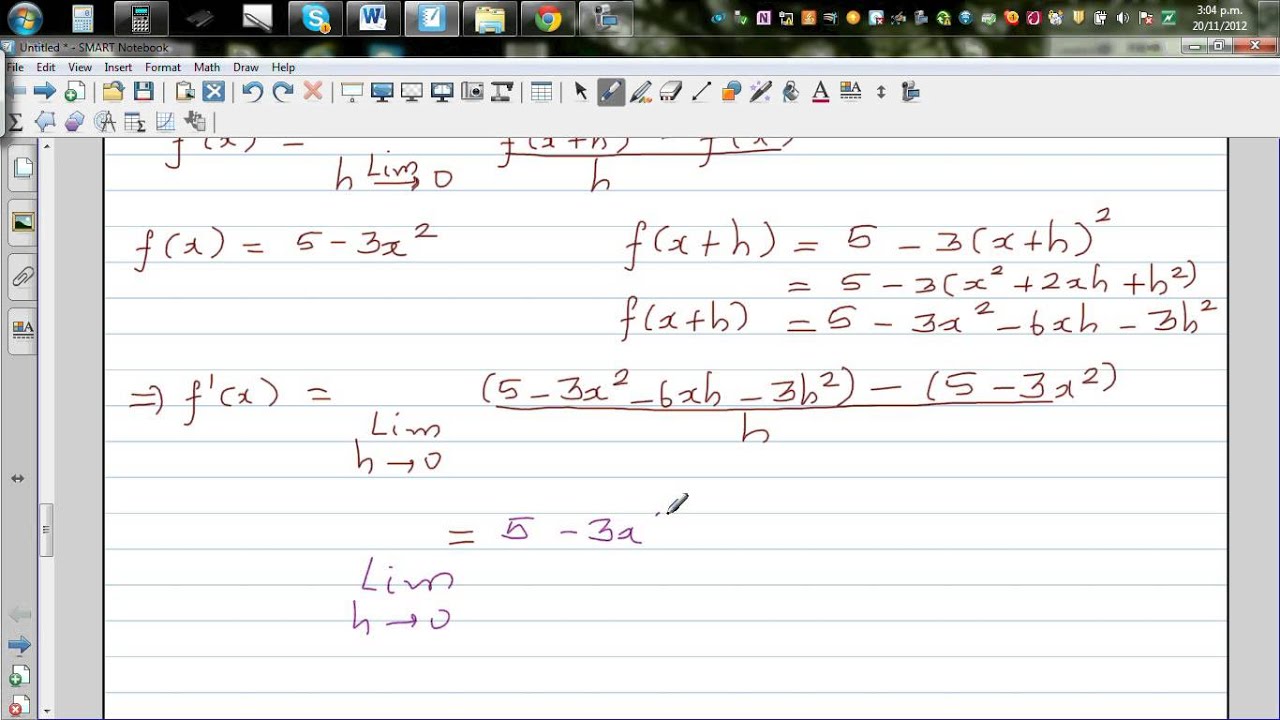 3:04 p.m.
20/11/2012
Untitled * - SMART Notebook
File Edit View Insert Format Math Draw Help
f'(x) = Lim h→0 f(x+h) - f(x) / h
f(x) = 5 - 3x²
f(x+h) = 5 - 3(x+h)²
= 5 - 3(x² + 2xh + h²)
f(x+h) = 5 - 3x² - 6xh - 3h²
⇒ f'(x) = Lim h→0 (5 - 3x² - 6xh - 3h²) - (5 - 3x²) / h
= 5 - 3x
Lim
h→0